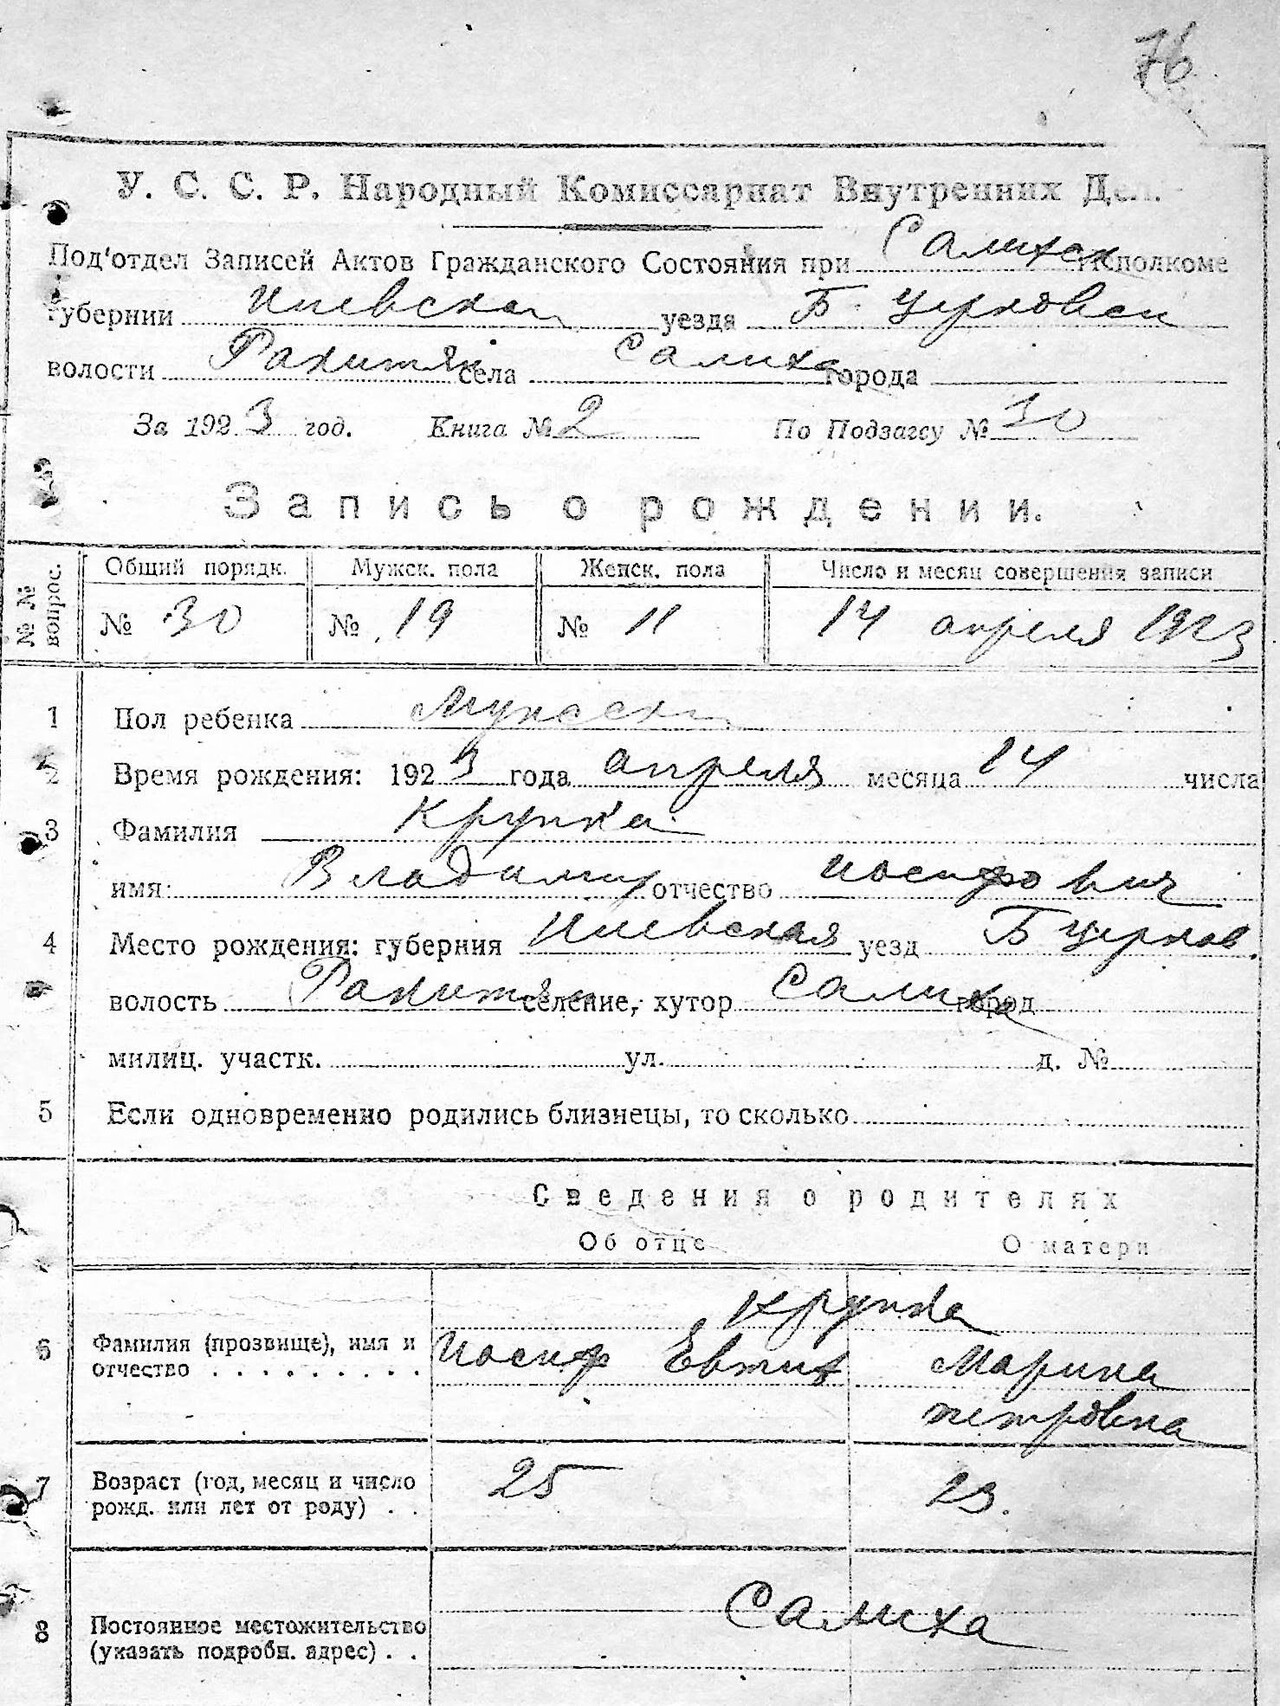 76
У. С. С. Р. Народный Комиссариат Внутренних Дел.
Под'отдел Записей Актов Гражданского Состояния при Салихск Исполкоме
губернии Киевская уезда Б. Церковск
волости Ракитян села Салиха города
За 1923 год. Книга № 2 По Подзагсу № 30
Запись о рождении.
№ № вопрос. Общий порядк. Мужск. пола Женск. пола Число и месяц совершения записи
№ 30 № 19 № 11 14 апреля 1923
1 Пол ребенка Мужеск
2 Время рождения: 1923 года апреля месяца 14 числа
3 Фамилия Крупка
имя: Владимир отчество Иосифович
4 Место рождения: губерния Киевская уезд Б Церков.
волость Ракитян селение, хутор Салиха город
милиц. участк. ул. д. №
5 Если одновременно родились близнецы, то сколько
Сведения о родителях
Об отце О матери
Крупка
6 Фамилия (прозвище), имя и Иосиф Евтих Марина
отчество . . . . . . . . . Петровна
7 Возраст (год, месяц и число 25 23.
рожд. или лет от роду) . .
8 Постоянное местожительство Салиха
(указать подробн. адрес) . .